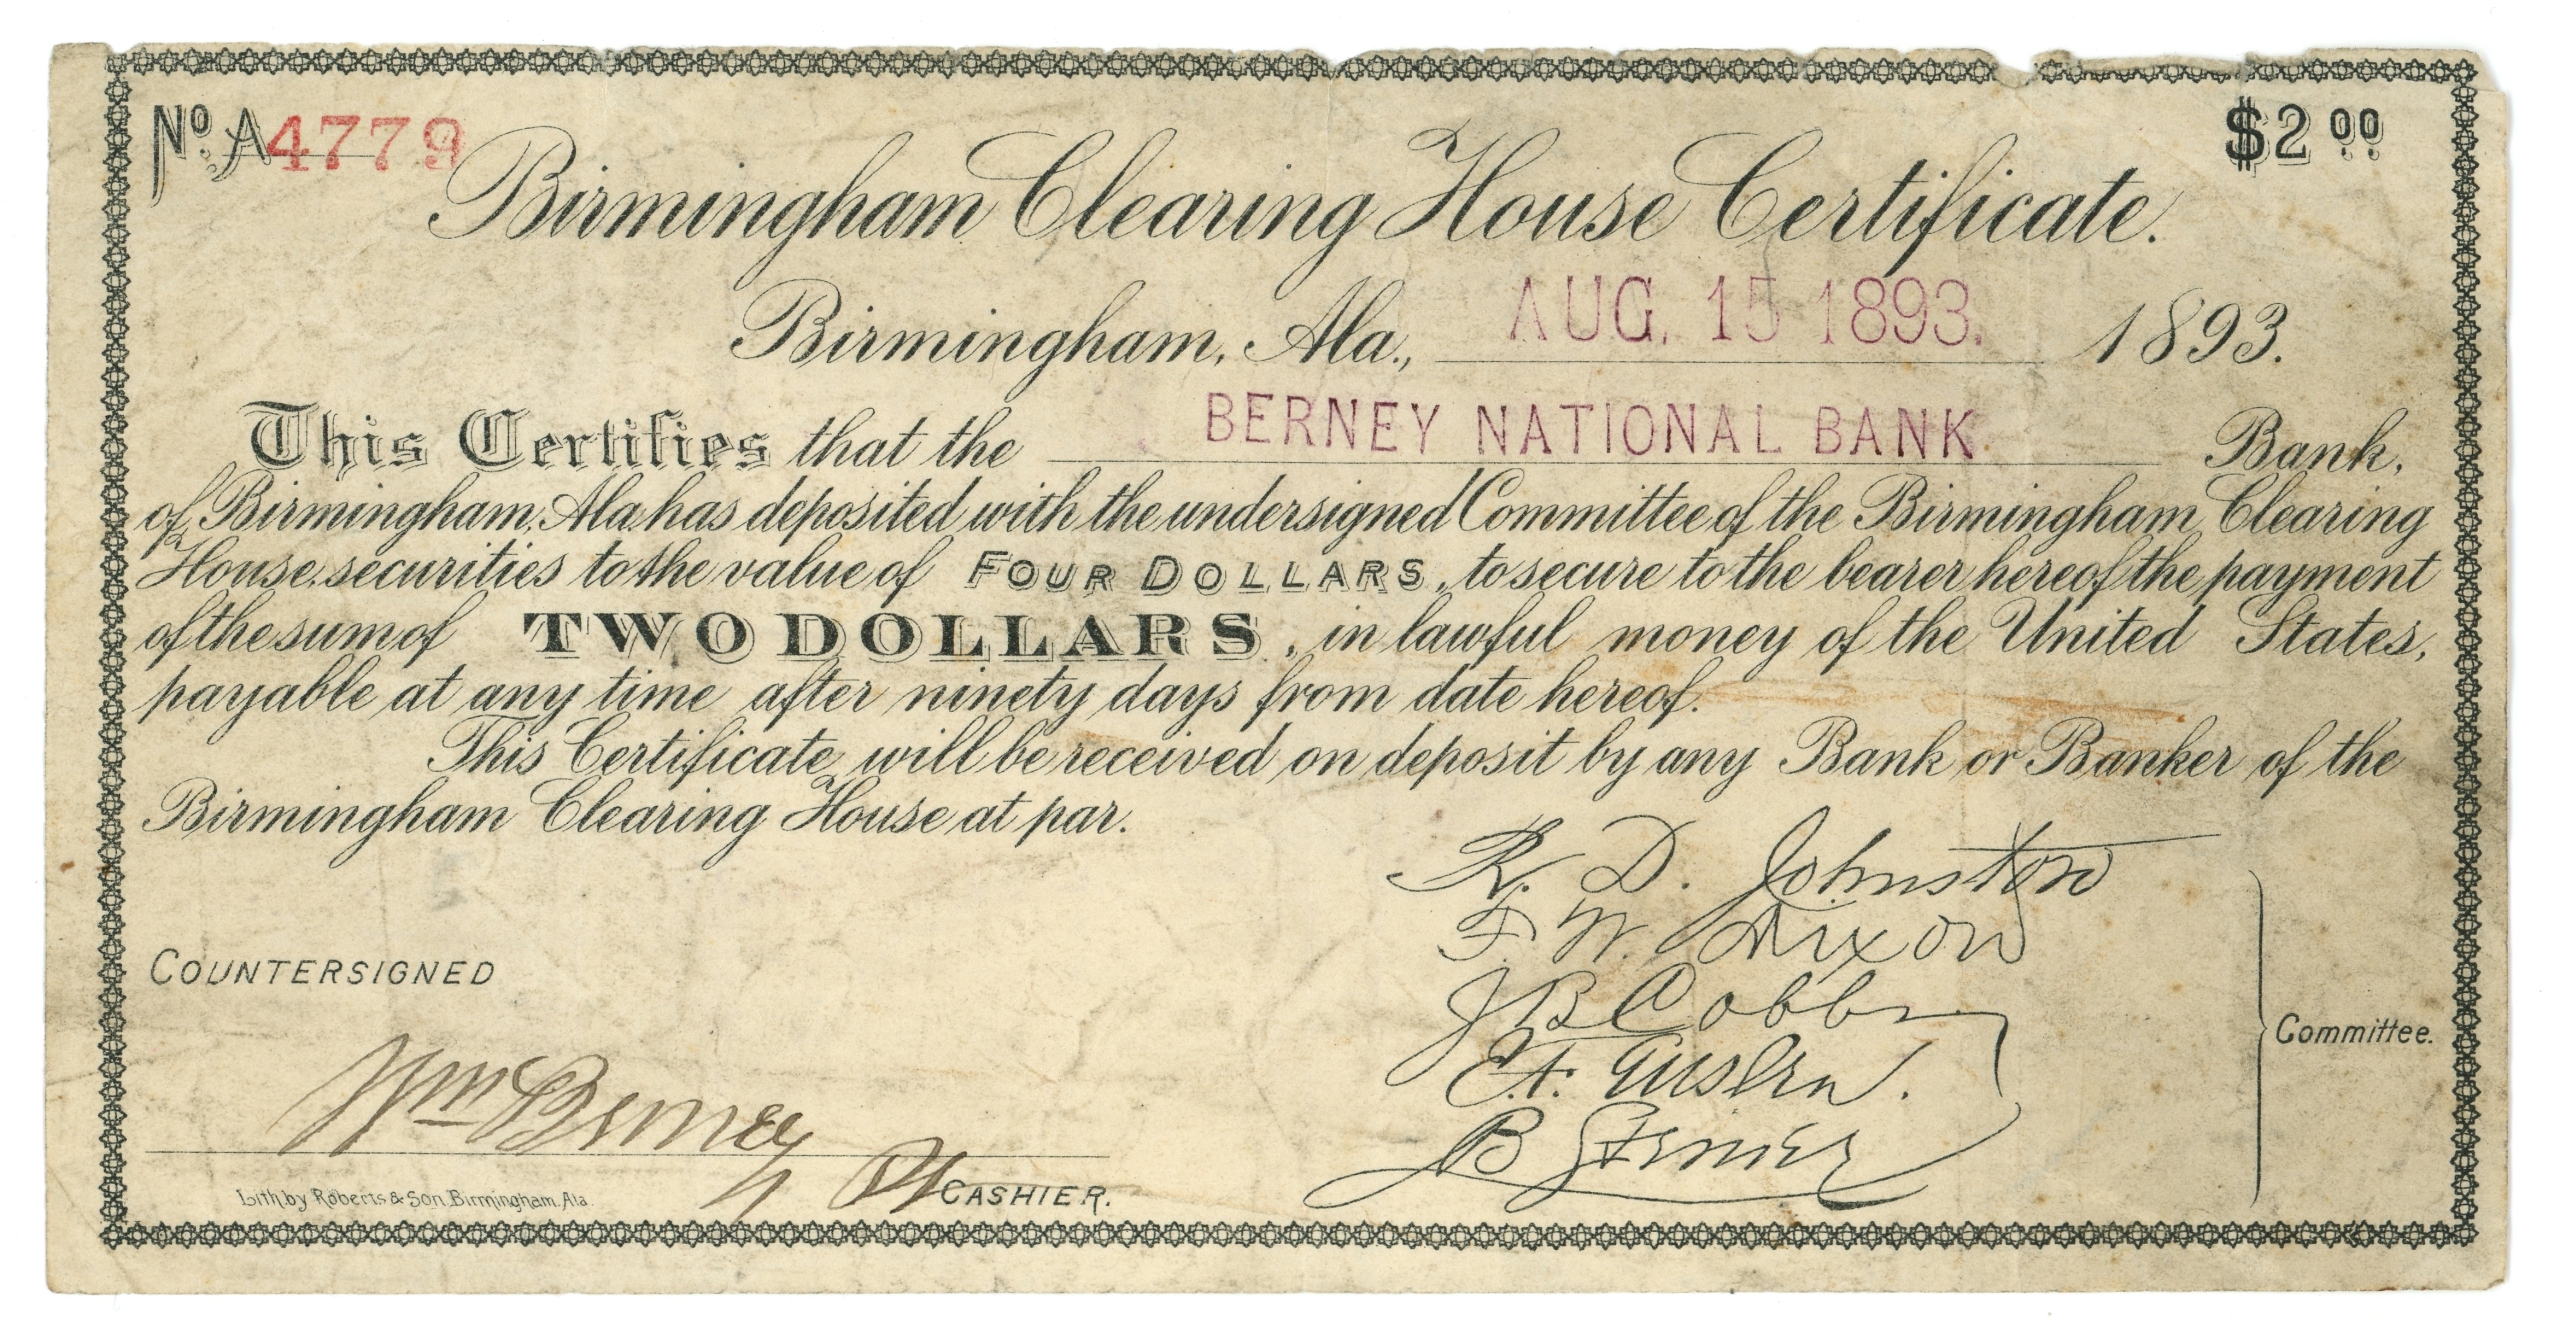 No. A4779
$2.00
Birmingham Clearing House Certificate.
Birmingham, Ala., AUG. 15 1893. 1893.
This Certifies that the BERNEY NATIONAL BANK Bank,
of Birmingham, Ala. has deposited with the undersigned Committee of the Birmingham Clearing
House, securities to the value of FOUR DOLLARS, to secure to the bearer hereof the payment
of the sum of TWO DOLLARS, in lawful money of the United States,
payable at any time after ninety days from date hereof.
This Certificate will be received on deposit by any Bank or Banker of the
Birmingham Clearing House at par.
R. D. Johnston
F. W. Dixon
J B Cobbs
B Steiner
Committee.
COUNTERSIGNED
Wm Berney
CASHIER.
Lith by Roberts & Son, Birmingham, Ala.